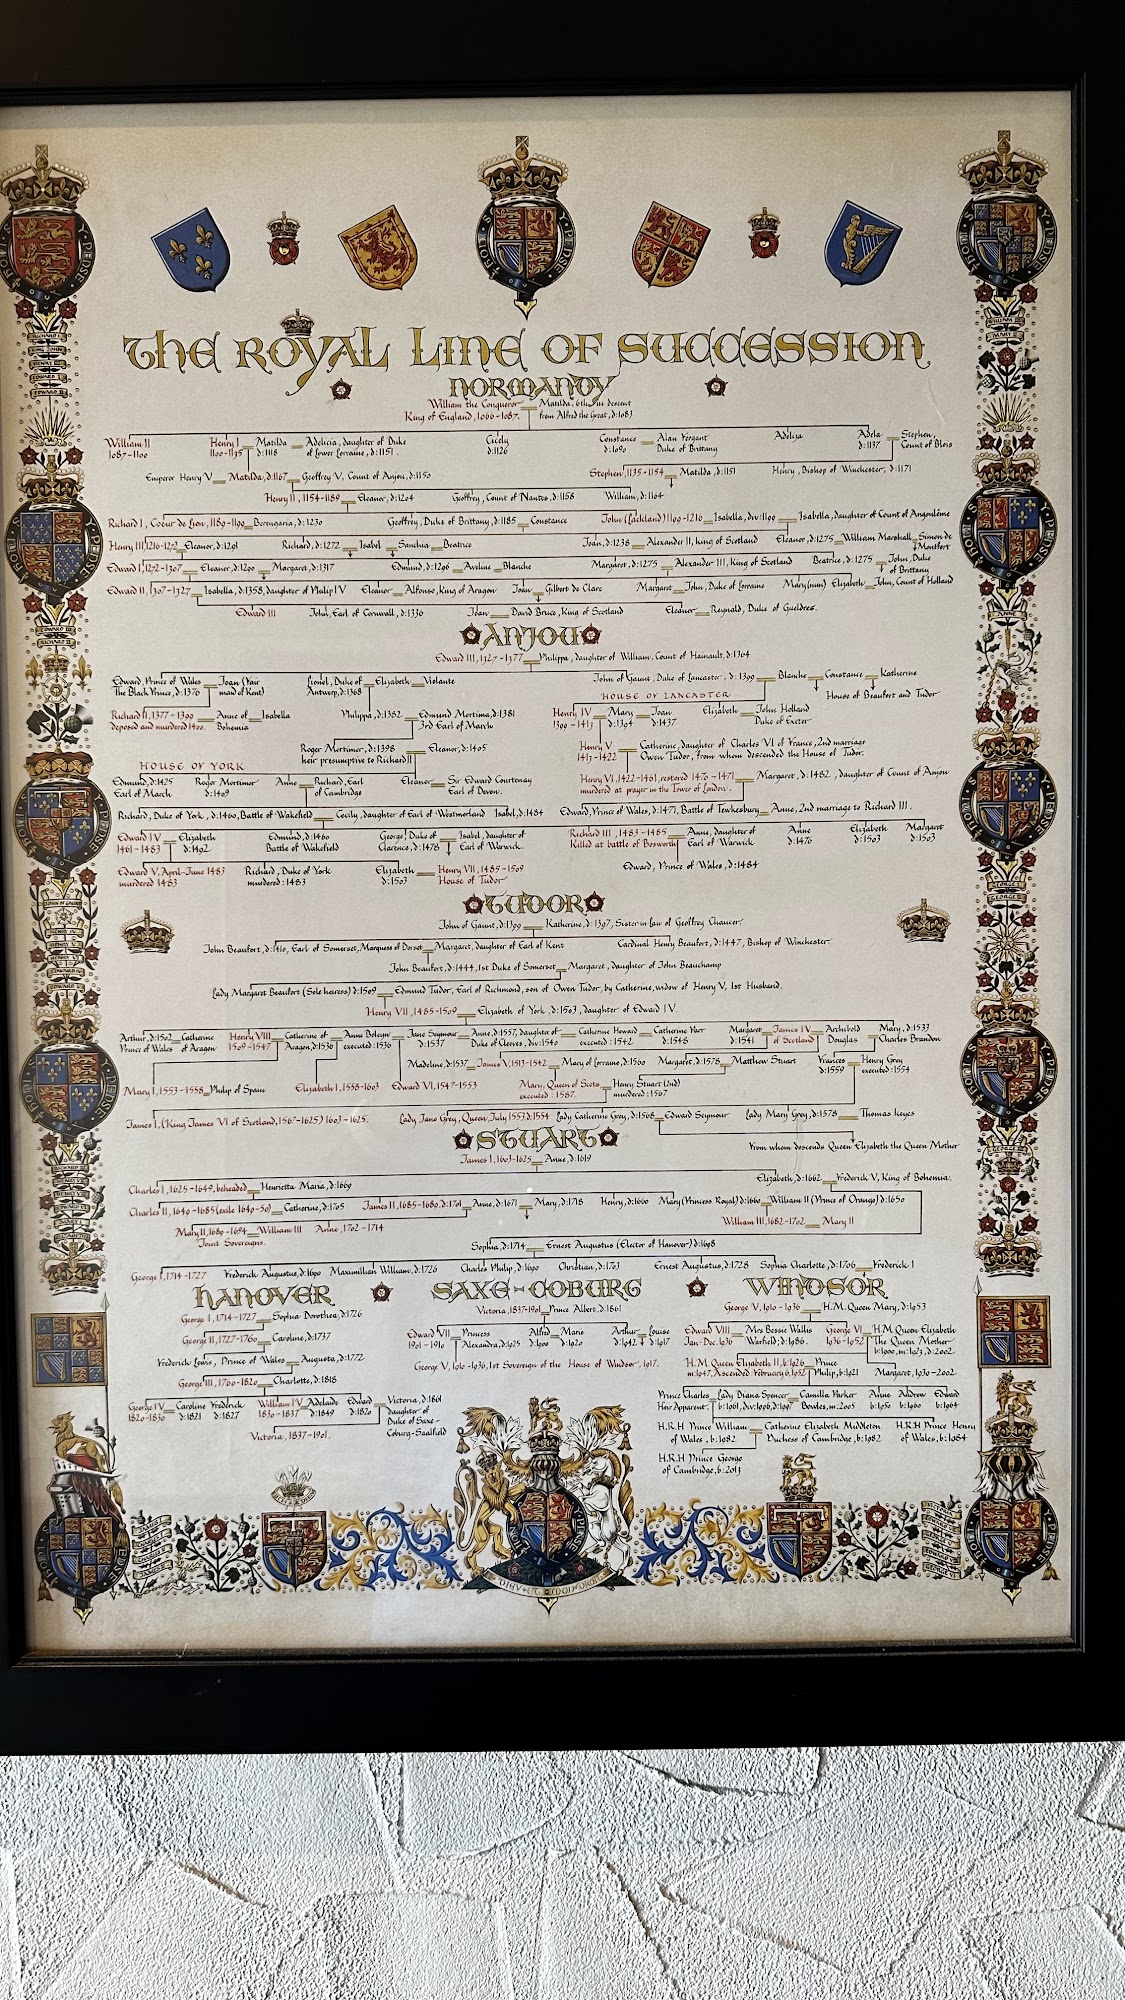 THE ROYAL LINE OF SUCCESSION
NORMANDY
William the Conqueror Matilda, 6th in descent
King of England, 1066-1087. from Alfred the Great, d:1083
William II Henry I Matilda Adelicia, daughter of Duke Cicely Constance Alan Fergant Adeliza Adela Stephen,
1087-1100 1100-1135 d:1118 of Lower Lorraine, d:1151. d:1126 d:1090 Duke of Brittany d:1137 Count of Blois
Emperor Henry V Matilda, d:1167 Geoffrey V, Count of Anjou, d:1150 Stephen, 1135-1154 Matilda, d:1151 Henry, Bishop of Winchester, d:1171
Henry II, 1154-1189 Eleanor, d:1204 Geoffrey, Count of Nantes, d:1158 William, d:1164
Richard I, Coeur de Lion, 1189-1199 Berengaria, d:1230 Geoffrey, Duke of Brittany, d:1185 Constance John (Lackland) 1199-1216 Isabella, div:1199 Isabella, daughter of Count of Angoulême
Henry III, 1216-1272 Eleanor, d:1291 Richard, d:1272 Isabel Sanchia Beatrice Joan, d:1238 Alexander II, king of Scotland Eleanor, d:1275 William Marshall Simon de
Montfort
Edward I, 1272-1307 Eleanor, d:1290 Margaret, d:1317 Edmund, d:1296 Aveline Blanche Margaret, d:1275 Alexander III, King of Scotland Beatrice, d:1275 John, Duke
of Brittany
Edward II, 1307-1327 Isabella, d:1358, daughter of Philip IV Eleanor Alfonso, King of Aragon Joan Gilbert de Clare Margaret John, Duke of Lorraine Mary (nun) Elizabeth John, Count of Holland
Edward III John, Earl of Cornwall, d:1336 Joan David Bruce, King of Scotland Eleanor Reynald, Duke of Gueldres.
ANJOU
Edward III, 1327-1377 Philippa, daughter of William, Count of Hainault, d:1364
Edward, Prince of Wales Joan (Fair Lionel, Duke of Elizabeth Violante John of Gaunt, Duke of Lancaster, d:1399 Blanche Constance Katherine
The Black Prince, d:1376 maid of Kent) Antwerp, d:1368 HOUSE OF LANCASTER House of Beaufort and Tudor
Richard II, 1377-1399 Anne of Isabella Philippa, d:1382 Edmund Mortima, d:1381 Henry IV Mary Joan Elizabeth John Holland
deposed and murdered 1400. Bohemia 3rd Earl of March 1399-1413 d:1394 d:1437 Duke of Exeter
Roger Mortimer, d:1398 Eleanor, d:1405 Henry V Catherine, daughter of Charles VI of France, 2nd marriage
heir presumptive to Richard II 1413-1422 Owen Tudor, from whom descended the House of Tudor.
HOUSE OF YORK
Edmund, d:1425 Roger Mortimer Anne Richard, Earl Eleanor Sir Edward Courtenay Henry VI, 1422-1461, restored 1470-1471 Margaret, d:1482, daughter of Count of Anjou
Earl of March d:1409 of Cambridge Earl of Devon. murdered at prayer in the Tower of London.
Richard, Duke of York, d:1460, Battle of Wakefield Cecily, daughter of Earl of Westmorland Isabel, d:1484 Edward, Prince of Wales, d:1471, Battle of Tewkesbury Anne, 2nd marriage to Richard III.
Edward IV Elizabeth Edmund, d:1460 George, Duke of Isabel, daughter of Richard III, 1483-1485 Anne, daughter of Anne Elizabeth Margaret
1461-1483 d:1492 Battle of Wakefield Clarence, d:1478 Earl of Warwick. Killed at battle of Bosworth Earl of Warwick d:1476 d:1503 d:1503
Edward V, April-June 1483 Richard, Duke of York Elizabeth Henry VII, 1485-1509 Edward, Prince of Wales, d:1484
murdered 1483 murdered:1483 d:1503 House of Tudor
TUDOR
John of Gaunt, d:1399 Katherine, d:1397, Sister in law of Geoffrey Chaucer
John Beaufort, d:1410, Earl of Somerset, Marquess of Dorset Margaret, daughter of Earl of Kent Cardinal Henry Beaufort, d:1447, Bishop of Winchester
John Beaufort, d:1444, 1st Duke of Somerset Margaret, daughter of John Beauchamp
Lady Margaret Beaufort (Sole heiress) d:1509 Edmund Tudor, Earl of Richmond, son of Owen Tudor, by Catherine, widow of Henry V, 1st Husband.
Henry VII, 1485-1509 Elizabeth of York, d:1503, daughter of Edward IV.
Arthur, d:1502 Catherine Henry VIII Catherine of Anne Boleyn Jane Seymour Anne, d:1557, daughter of Catherine Howard Catherine Parr Margaret James IV Archibold Mary, d:1533
Prince of Wales of Aragon 1509-1547 Aragon, d:1536 executed:1536 d:1537 Duke of Cleeves, div:1540 executed:1542 d:1548 d:1541 of Scotland Douglas Charles Brandon
Madeline, d:1537 James V, 1513-1542 Mary of Lorraine, d:1560 Margaret, d:1578 Matthew Stuart Frances Henry Grey
d:1559 executed:1554
Mary I, 1553-1558 Philip of Spain Elizabeth I, 1558-1603 Edward VI, 1547-1553 Mary, Queen of Scots Henry Stuart (2nd)
executed:1587 murdered:1567
James I, (King James VI of Scotland, 1567-1625) 1603-1625. Lady Jane Grey, Queen, July 1553 d:1554 Lady Catherine Grey, d:1568 Edward Seymour Lady Mary Grey, d:1578 Thomas Keyes
STUART
From whom descends Queen Elizabeth the Queen Mother
James I, 1603-1625 Anne, d:1619
Charles I, 1625-1649, beheaded Henrietta Maria, d:1669 Elizabeth, d:1662 Frederick V, King of Bohemia.
Charles II, 1649-1685 (exile 1649-50) Catherine, d:1705 James II, 1685-1689, d:1701 Anne, d:1671 Mary, d:1718 Henry, d:1660 Mary (Princess Royal) d:1660 William II (Prince of Orange) d:1650
Mary II, 1689-1694 William III Anne, 1702-1714 William III, 1682-1702 Mary II
Joint Sovereigns.
Sophia, d:1714 Ernest Augustus (Elector of Hanover) d:1698
George I, 1714-1727 Frederick Augustus, d:1690 Maximillian William, d:1726 Charles Philip, d:1690 Christian, d:1703 Ernest Augustus, d:1728 Sophia Charlotte, d:1706 Frederick I
HANOVER SAXE-COBURG WINDSOR
George I, 1714-1727 Sophia Dorothea, d:1726
George II, 1727-1760 Caroline, d:1737
Frederick Lewis, Prince of Wales Augusta, d:1772
George III, 1760-1820 Charlotte, d:1818
George IV Caroline Frederick William IV Adelaide Edward Victoria, d:1861
1820-1830 d:1821 d:1827 1830-1837 d:1849 d:1820 daughter of
Duke of Saxe-
Coburg-Saalfield
Victoria, 1837-1901.
Victoria, 1837-1901 Prince Albert, d:1861
Edward VII Princess Alfred Marie Arthur Louise
1901-1910 Alexandra, d:1925 d:1900 d:1920 d:1942 d:1917
George V, 1910-1936, 1st Sovereign of the House of Windsor, 1917.
George V, 1910-1936 H.M. Queen Mary, d:1953
Edward VIII Mrs Bessie Wallis George VI H.M. Queen Elizabeth
Jan-Dec. 1936 Warfield, d:1986. 1936-1952 The Queen Mother
b:1900, m:1923, d:2002.
H.M. Queen Elizabeth II, b:1926 Prince
m:1947, Ascended February 6, 1952 Philip, b:1921 Margaret, 1930-2002.
Prince Charles Lady Diana Spencer Camilla Parker Anne Andrew Edward
Heir Apparent. b:1961, div:1996, d:1997 Bowles, m:2005 b:1950 b:1960 b:1964
H.R.H Prince William Catherine Elizabeth Middleton H.R.H Prince Henry
of Wales, b:1982 Duchess of Cambridge, b:1982 of Wales, b:1984
H.R.H Prince George
of Cambridge, b:2013
DIEU ET MON DROIT